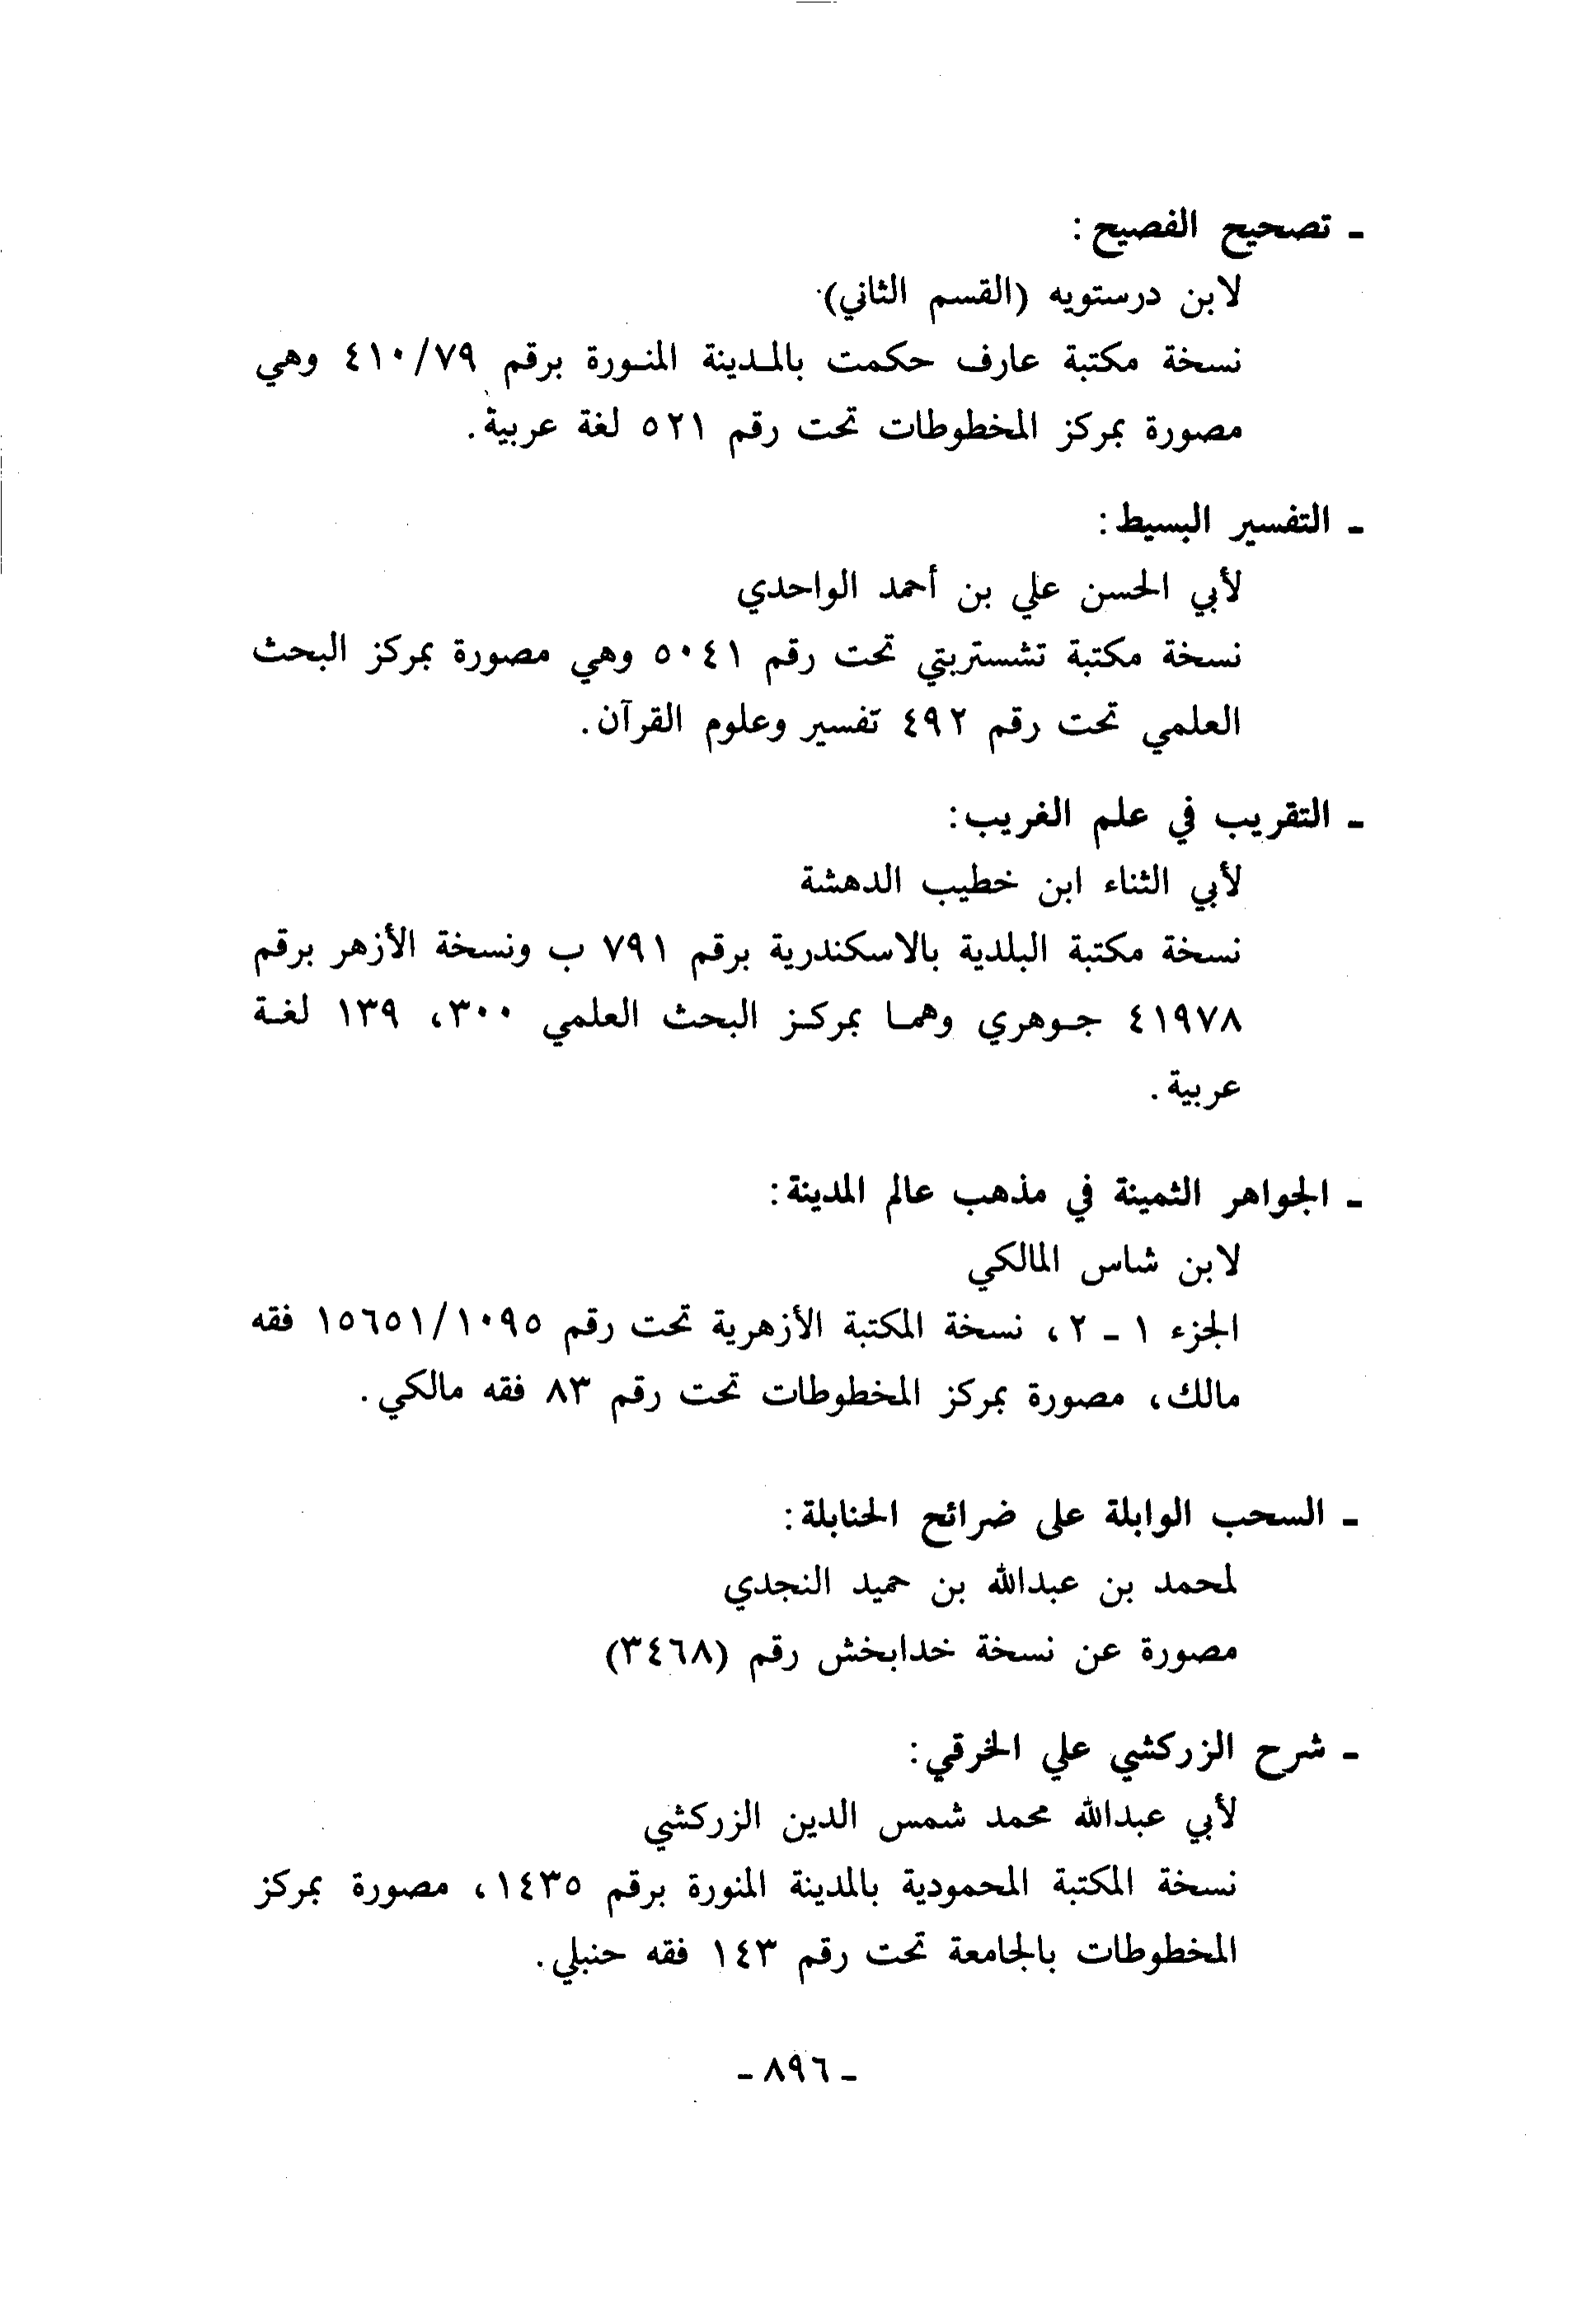 ـ تصحيح الفصيح:
لابن درستويه (القسم الثاني)
نسخة مكتبة عارف حكمت بالمدينة المنورة برقم ٤١٠/٧٩ وهي
مصورة بمركز المخطوطات تحت رقم ٥٢١ لغة عربية.
ـ التفسير البسيط:
لأبي الحسن علي بن أحمد الواحدي
نسخة مكتبة تشستربتي تحت رقم ٥٠٤١ وهي مصورة بمركز البحث
العلمي تحت رقم ٤٩٢ تفسير وعلوم القرآن.
ـ التقريب في علم الغريب:
لأبي الثناء ابن خطيب الدهشة
نسخة مكتبة البلدية بالاسكندرية برقم ٧٩١ ب ونسخة الأزهر برقم
٤١٩٧٨ جوهري وهما بمركز البحث العلمي ٣٠٠، ١٣٩ لغة
عربية.
ـ الجواهر الثمينة في مذهب عالم المدينة:
لابن شاس المالكي
الجزء ١ ـ ٢، نسخة المكتبة الأزهرية تحت رقم ١٥٦٥١/١٠٩٥ فقه
مالك، مصورة بمركز المخطوطات تحت رقم ٨٣ فقه مالكي.
ـ السحب الوابلة على ضرائح الحنابلة:
لمحمد بن عبدالله بن حميد النجدي
مصورة عن نسخة خدابخش رقم (٣٤٦٨)
ـ شرح الزركشي علي الخرقي:
لأبي عبدالله محمد شمس الدين الزركشي
نسخة المكتبة المحمودية بالمدينة المنورة برقم ١٤٣٥، مصورة بمركز
المخطوطات بالجامعة تحت رقم ١٤٣ فقه حنبلي.
ـ ٨٩٦ ـ